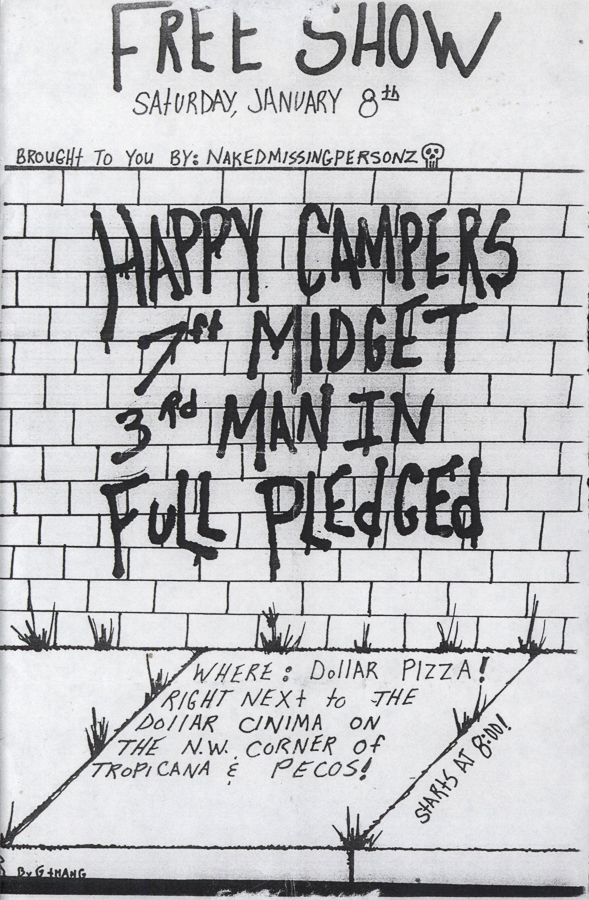 FREE SHOW
SAtURDAY, JANUARY 8th
BROUGHt TO YOU BY: NAKEDMISSINGPERSONZ
HAPPY CAMPERS
7 ft MIDGET
3Rd MAN IN
FULL PLEdGEd
WHERE: DollAR PIZZA!
RIGHT NEXt to THE
DollAR CINIMA ON
THE N.W. CORNER Of
TROPICANA & PECOS!
StARtS At 8:00!
By GtMANG